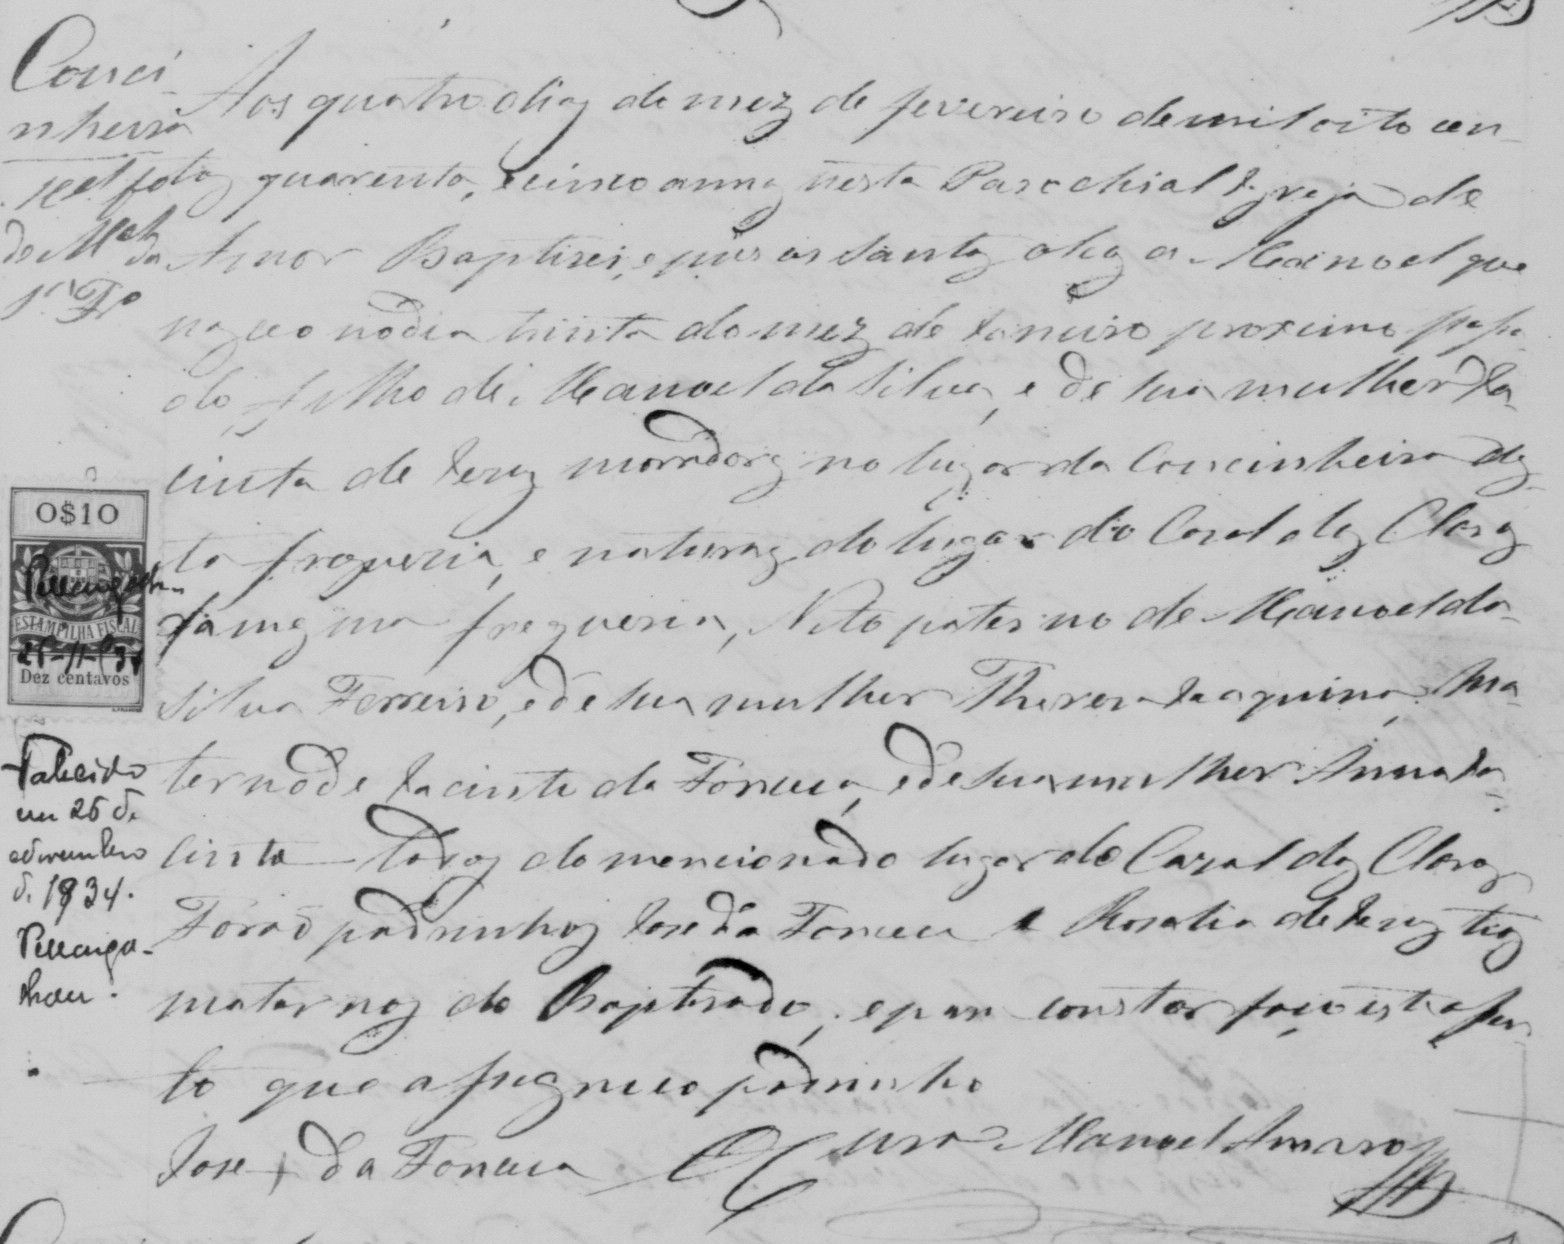 Couci
nheira
Aos quatro dias do mez de fevereiro de mil oito cen
tos quarenta, e cinco annos nesta Parochial Igreja de
de Mel da
Amor Baptizei, e puz os santos olios a Manoel que
1º Fº
nasceo no dia trinta do mez de Janeiro proximo passa
do, filho de Manoel da Silva, e de sua mulher Ja
cinta de Jezus moradores no lugar da Coucinheira des
ta freguezia, e naturaes do lugar do Cazal dos Claros
da mesma freguezia, Neto paterno de Manoel da
Silva Ferreiro, e de sua mulher Thereza Joaquina, Ma
terno de Jacinto da Fonceca, e de sua mulher Anna Ja
cinta todos do mencionado lugar do Cazal dos Claros
Forão padrinhos Jose da Fonceca e Rosalia de Jezus tios
maternos do Baptisado, e para constar faço este assen
to que assignei e o padrinho
Jose + da Fonceca O Cura Manoel Amaro
0$10
ESTAMPILHA FISCAL
25-11-934
Dez centavos
Falecido
em 25 de
novembro
de 1934.